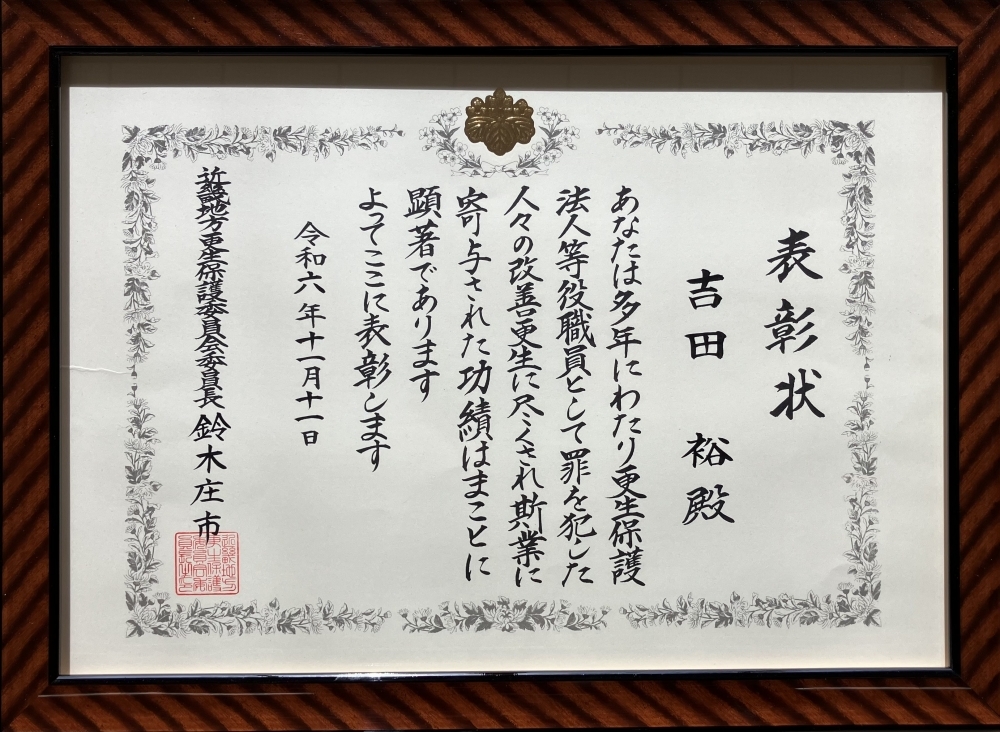 表彰状
吉田 裕殿
あなたは多年にわたり更生保護
法人等役職員として罪を犯した
人々の改善更生に尽くされ斯業に
寄与された功績はまことに
顕著であります
よってここに表彰します
令和六年十一月十一日
近畿地方更生保護委員会委員長 鈴木庄市